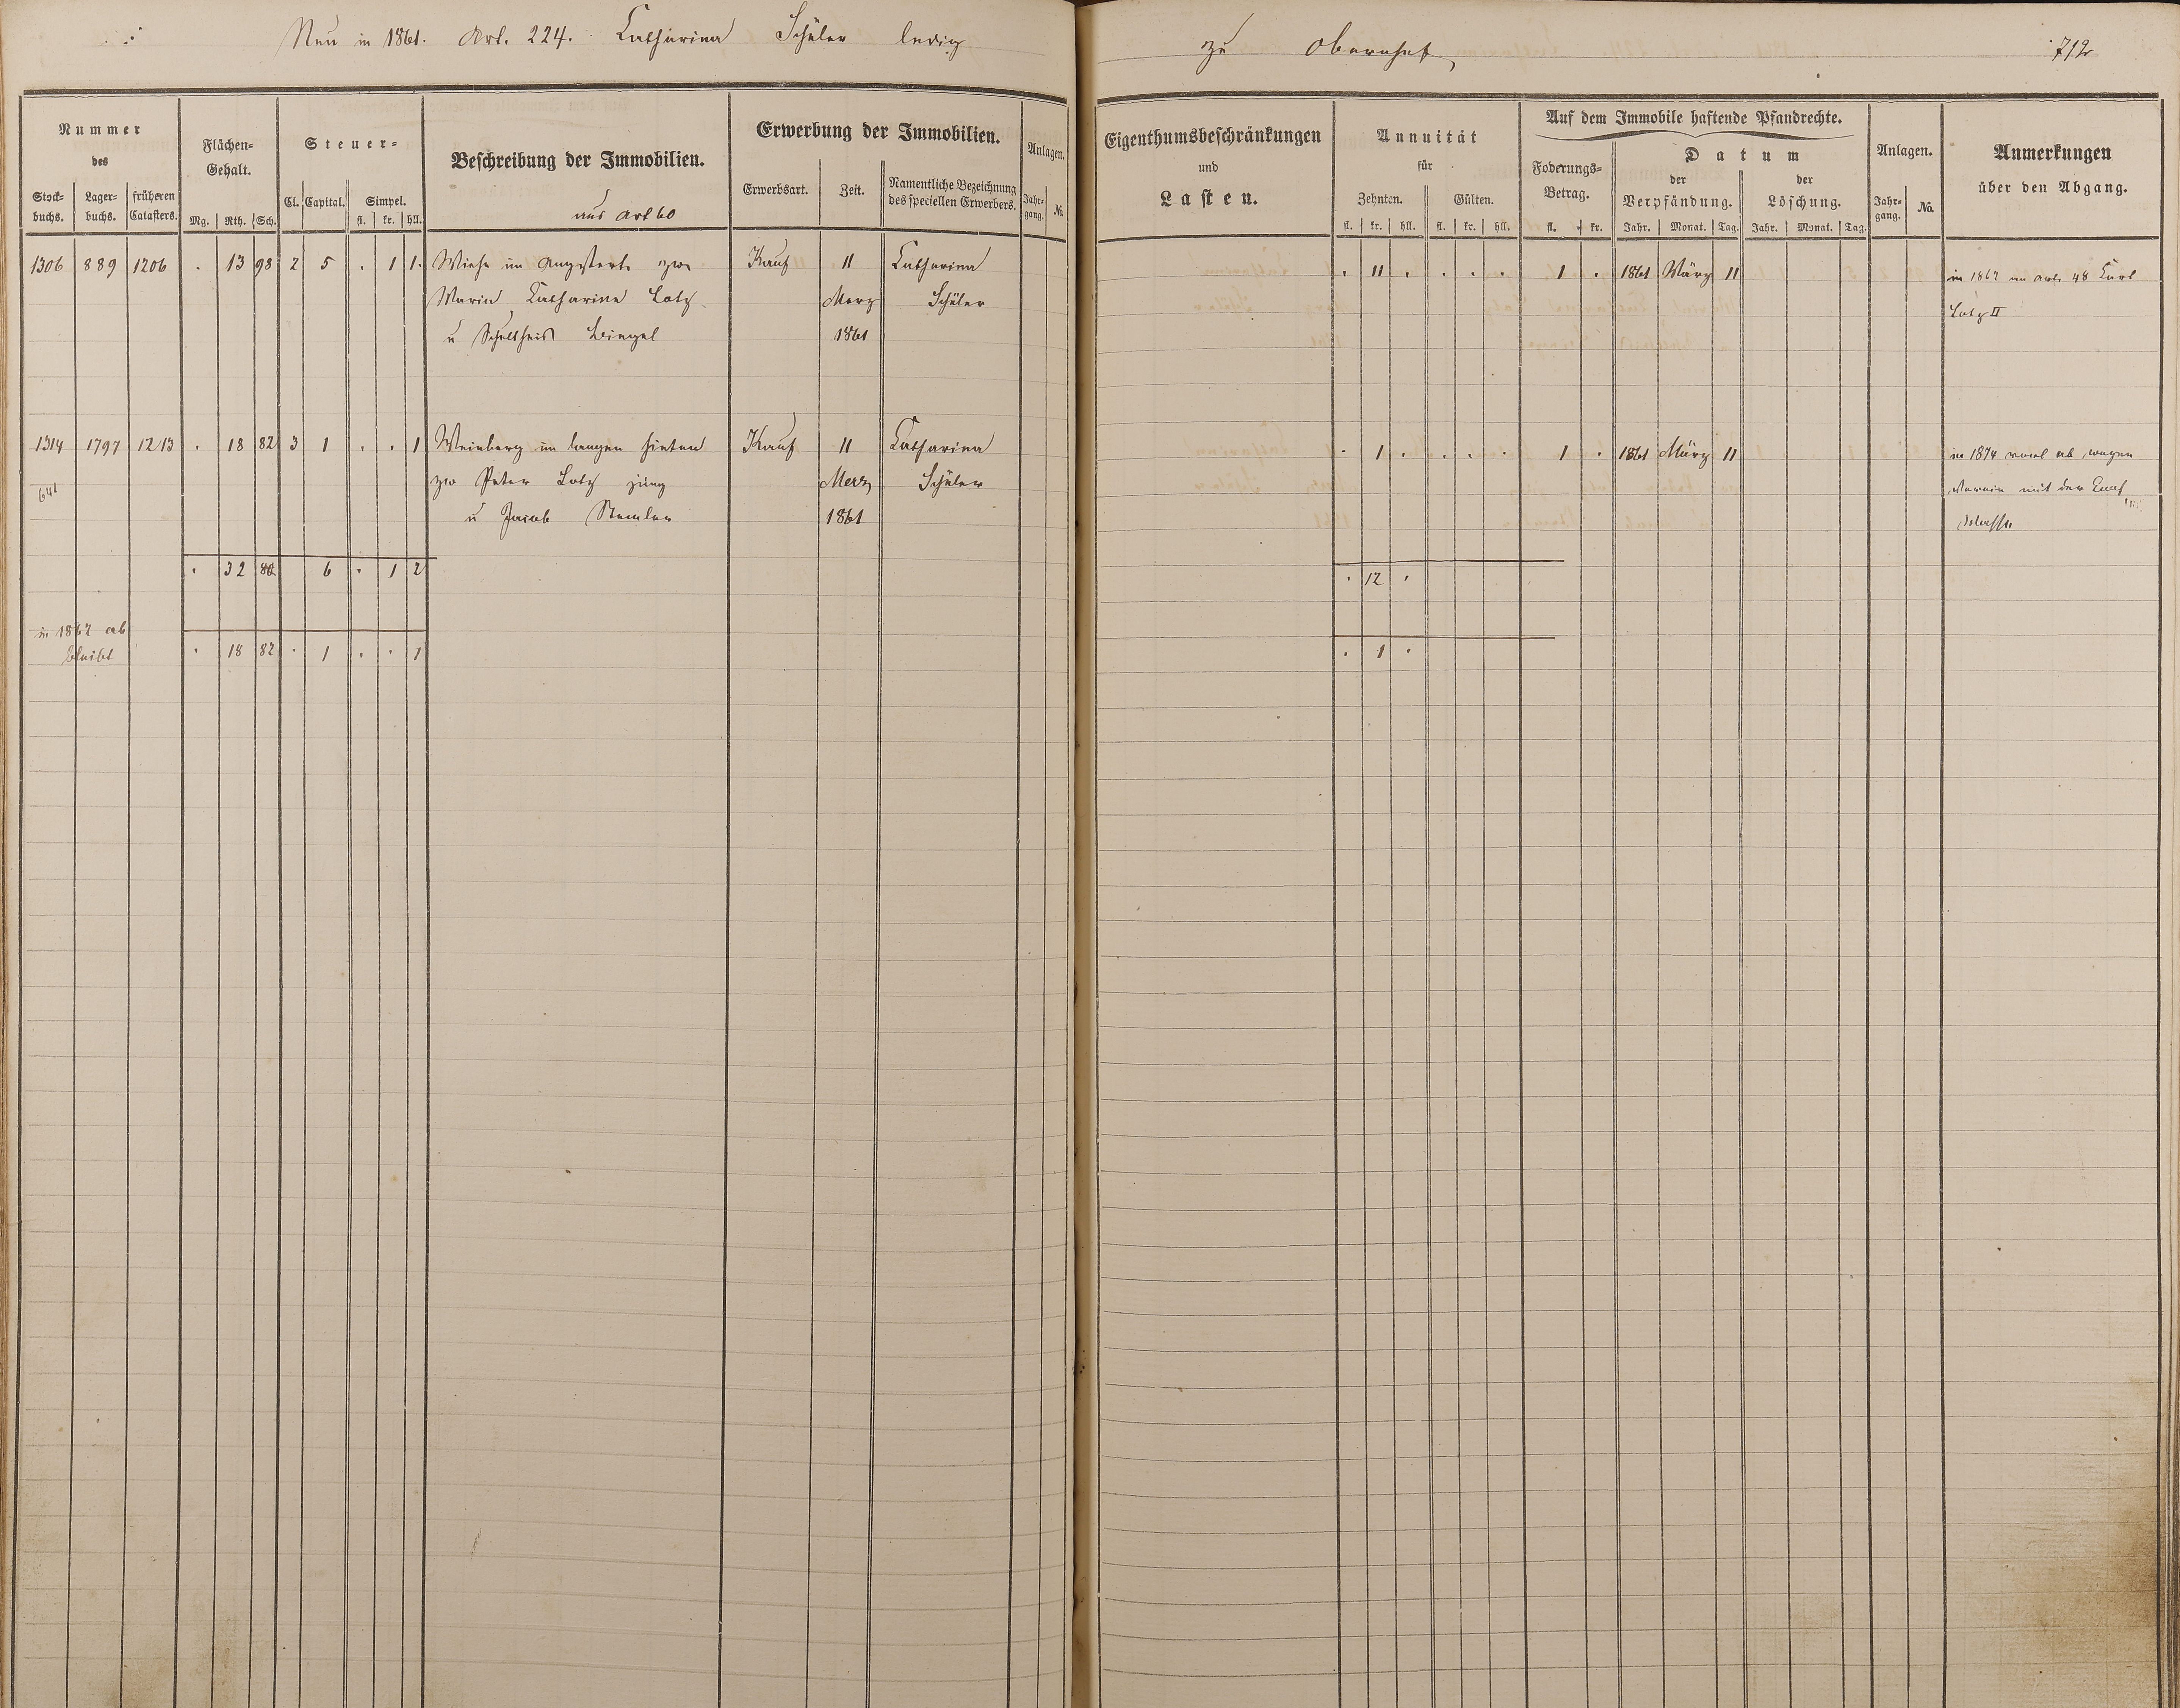 Neu in 1861. Art. 224. Catharina Schüler ledig
zu Obernhof
712
Nummer
des
Stock-
buchs.
Lager-
buchs.
früheren
Catasters.
Flächen-
Gehalt.
Mg. Rth. Sch.
Steuer-
Cl. Capital. Simpel.
fl. kr. hll.
Beschreibung der Immobilien.
aus Art 60
Erwerbung der Immobilien.
Erwerbsart. Zeit. Namentliche Bezeichnung
des speciellen Erwerbers.
Anlagen.
Jahr-
gang. No.
Eigenthumsbeschränkungen
und
Lasten.
Annuität
für
Zehnten. Gülten.
fl. kr. hll. fl. kr. hll.
Auf dem Immobile haftende Pfandrechte.
Foderungs-
Betrag.
fl. kr.
Datum
der
Verpfändung.
der
Löschung.
Jahr. Monat. Tag. Jahr. Monat. Tag.
Anlagen.
Jahr-
gang. No.
Anmerkungen
über den Abgang.
1306 889 1206 . 13 98 2 5 . 1 1. Wiese im zw Kauf 11 Catharina . 11 . . . . 1 . 1861 März 11 in 1862 an Art. 48 Carl
Maria Catharina Lotz Merz Schüler Lotz II
u Schultheis 1861
1314 1797 1213 . 18 82 3 1 . . 1 Weinberg im langen hinten Kauf 11 Catharina . 1 . . . . 1 . 1861 März 11 in 1874 ab wegen
641 zw Peter Lotz jung Merz Schüler mit der
u Jacob 1861 Masse
. 32 80 6 . 1 2 . 12 .
in 1862 ab
bleibt . 18 82 . 1 . . 1 . 1 .